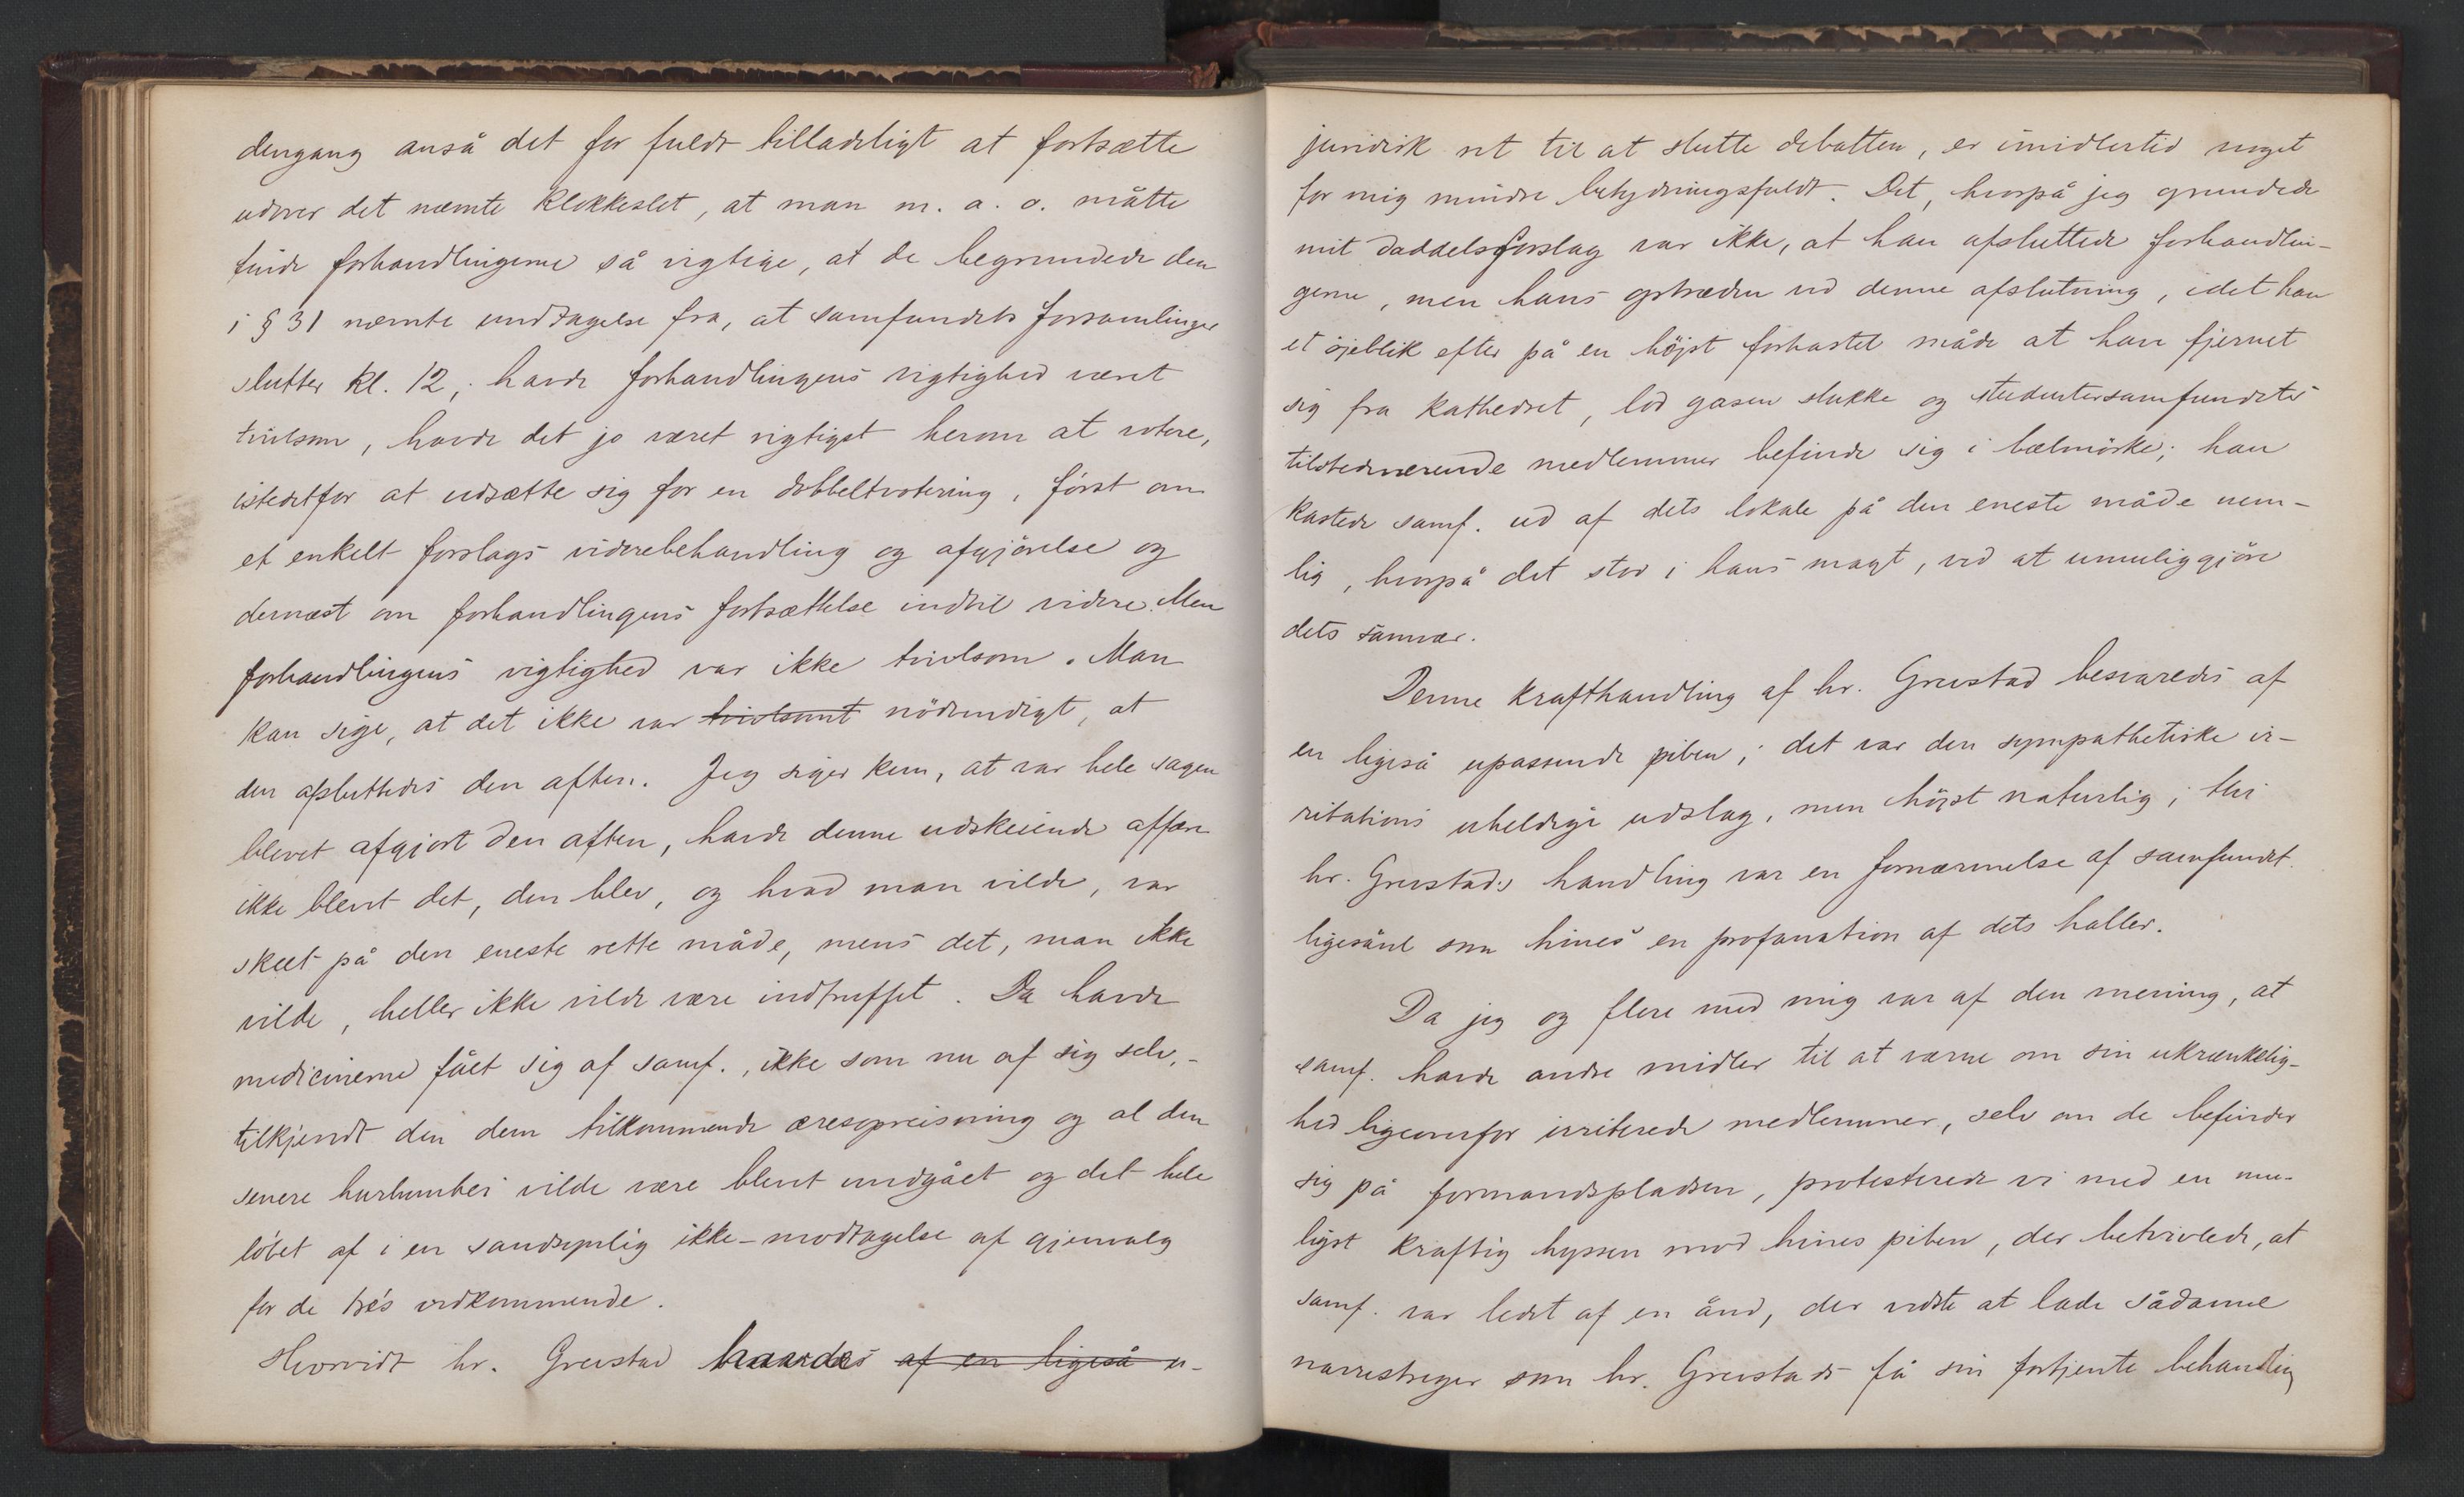 dengang anså det for fuldt tilladeligt at fortsætte
udover det nævnte klokkeslet, at man m. a. o. måtte
finde forhandlingerne så vigtige, at de begrundede den
i § 31 nævnte undtagelse fra, at samfundets forsamlinger
slutter kl. 12; havde forhandlingens vigtighed været
tvivlsom, havde det jo været rigtigst herom at votere,
istedetfor at udsætte sig for en dobbeltvotering, først om
et enkelt forslags viderebehandling og afgjørelse og
dernæst om forhandlingens fortsættelse indtil videre. Men
forhandlingens vigtighed var ikke tvivlsom. Man
kan sige, at det ikke var tvivlsomt nödvendigt, at
den afsluttedes den aften. Jeg siger kun, at var hele sagen
blevet afgjort den aften, havde denne udskeiende affære
ikke blevet det, den blev, og hvad man vilde, var
skeet på den eneste rette måde, mens det, man ikke
vilde, heller ikke vilde være indtruffet. Da havde
medicinerne fået sig af samf., ikke som nu af sig selv, -
tilkjendt den dem tilkommende æresopreisning og al den
senere hurlumhei vilde være blevet undgået og det hele
löbet af i en sandsynlig ikke-modtagelse af gjenvalg
for de tre's vedkommende.
Hvorvidt hr. Grevstad havde af en ligeså u-
juridisk ret til at slutte debatten, er imidlertid noget
for mig mindre betydningsfuldt. Det, hvorpå jeg grundede
mit daddelsforslag var ikke, at han afsluttede forhandlin-
gerne, men hans optræden ved denne afslutning, idet han
et øjeblik efter på en höjst forhastet måde at have fjernet
sig fra kathedret, lod gasen slukke og studentersamfundets
tilstedeværende medlemmer befinde sig i bælmörke; han
kastede samf. ud af dets lokale på den eneste måde nem-
lig, hvorpå det stod i hans magt, ved at umuliggjöre
dets samvær.
Denne krafthandling af hr. Grevstad besvaredes af
en ligeså upassende piben; det var den sympathetiske ir-
ritations uheldige udslag, men höjst naturlig; thi
hr. Grevstads handling var en fornærmelse af samfundet
ligesåvel som hines en profanation af dets haller.
Da jeg og flere med mig var af den mening, at
samf. havde andre midler til at værne om sin ukrænkelig-
hed ligeoverfor irriterede medlemmer, selv om de befinder
sig på formandspladsen, protesterede vi med en mu-
ligst kraftig hyssen mod hines piben, der betvivlede, at
samf. var ledet af en ånd, der vidste at lade sådanne
narrestreger som hr. Grevstads få sin fortjente behandling